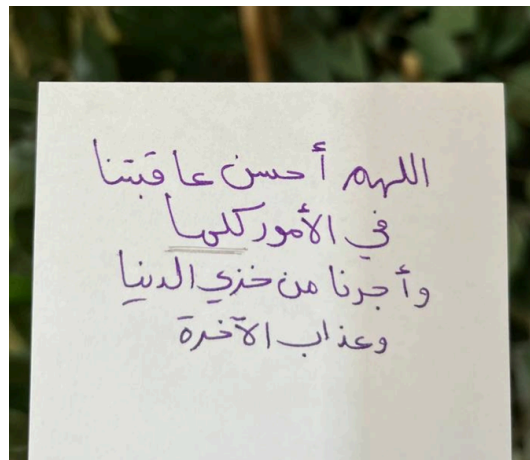 اللهم أحسن عاقبتنا
في الأمور كلها
وأجرنا من خزي الدنيا
وعذاب الآخرة